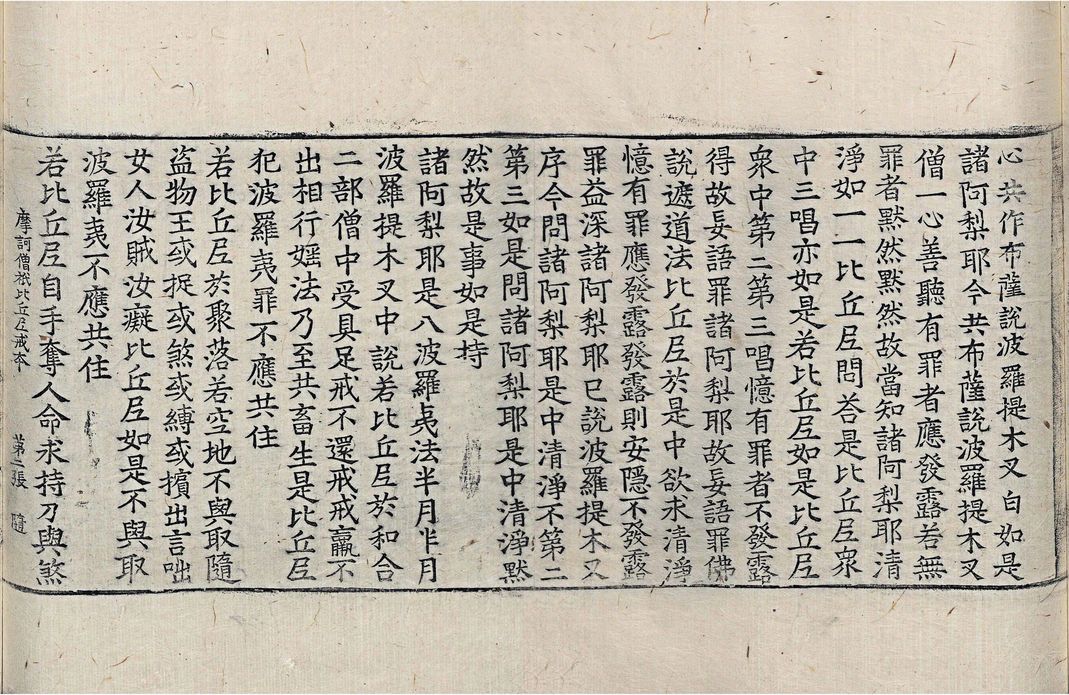 心共作布薩說波羅提木叉白如是
諸阿梨耶今共布薩說波羅提木叉
僧一心善聽有罪者應發露若無
罪者默然默然故當知諸阿梨耶清
淨如一一比丘尼問荅是比丘尼衆
中三唱亦如是若比丘尼如是比丘尼
衆中第二第三唱憶有罪者不發露
得故妄語罪諸阿梨耶故妄語罪佛
說遮道法比丘尼於是中欲求清淨
憶有罪應發露發露則安隱不發露
罪益深諸阿梨耶已說波羅提木叉
序今問諸阿梨耶是中清淨不第二
第三如是問諸阿梨耶是中清淨默
然故是事如是持
諸阿梨耶是八波羅夷法半月半月
波羅提木叉中說若比丘尼於和合
二部僧中受具足戒不還戒戒羸不
出相行婬法乃至共畜生是比丘尼
犯波羅夷罪不應共住
若比丘尼於聚落若空地不與取隨
盜物王或捉或煞或縛或擯出言咄
女人汝賊汝癡比丘尼如是不與取
波羅夷不應共住
摩訶僧祇比丘尼戒本 第二張 隨
若比丘尼自手奪人命求持刀與煞